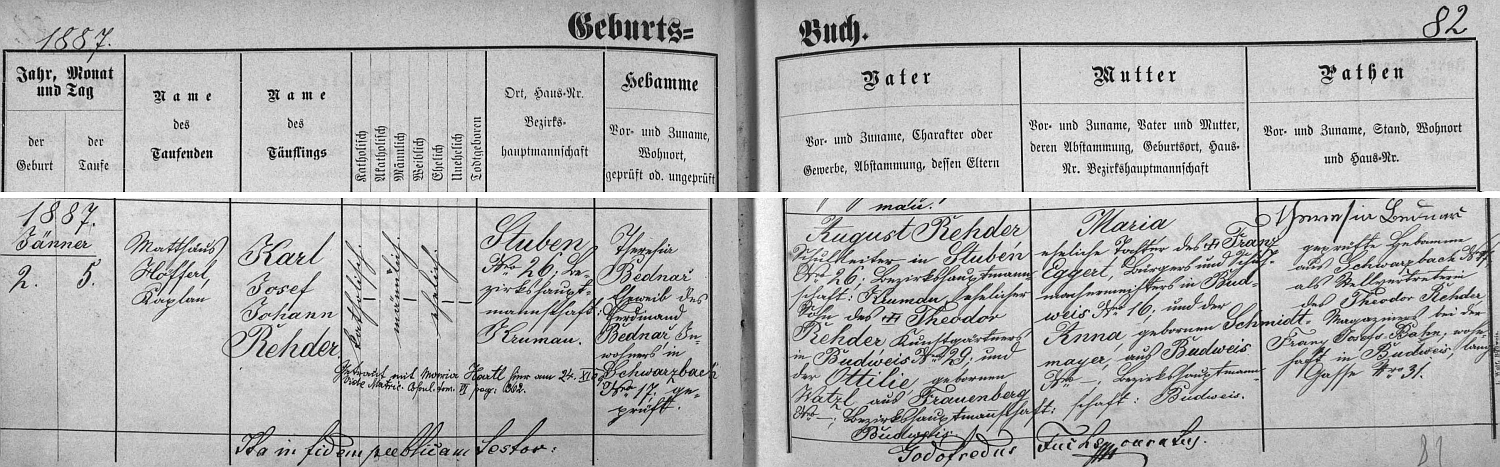 1887.
Geburts=
Buch.
82
Jahr, Monat
und Tag
der
Geburt
der
Taufe
Name
des
Taufenden
Name
des
Täuflings
Katholisch
Akatholisch
Männlich
Weiblich
Ehelich
Unehelich
Todtgeboren
Ort, Haus-Nr.
Bezirks-
hauptmannschaft
Hebamme
Vor- und Zuname,
Wohnort,
geprüft od. ungeprüft
Vater
Vor- und Zuname, Charakter oder
Gewerbe, Abstammung, dessen Eltern
Mutter
Vor- und Zuname, Vater und Mutter,
deren Abstammung, Geburtsort, Haus-
Nr. Bezirkshauptmannschaft
Pathen
Vor- und Zuname, Stand, Wohnort
und Haus-Nr.
1887.
Jänner
2. 5.
Matthäus
Hofferl
Kaplan
Karl
Josef
Johann
Rehder
katholisch.
männlich.
ehelich.
Stuben
Nro 26; Be-
zirkshaupt-
mannschaft:
Krumau.
Theresia
Bednař
Eheweib des
Ferdinand
Bednař In-
wohners in
Schwarzbach
Nro 17, ge-
prüft.
Getraut mit Maria Hartl hier am 24.
pag. 302.
mau.
August Rehder
Schulleiter in Stuben
Nro 26; Bezirkshauptmann-
schaft: Krumau, ehelicher
Sohn des Theodor
Rehder Kunstgärtners
in Budweis No 29; und
der Ottilie, gebornen
Watzl aus Frauenberg
Nro —; Bezirkshauptmannschaft:
Budweis.
Maria
eheliche Tochter des Franz
Eggerl, Bürgers und Schuh-
machermeisters in Bud-
weis Nro 16, und der
Anna gebornen Schmidt-
mayer, aus Budweis
Nro —; Bezirkshauptmann-
schaft: Budweis.
Theresia Bednař
geprüfte Hebamme
aus Schwarzbach No 17,
als Stellvertreterin
des Theodor Rehder
Magazineurs bei der
Franz Josefs-Bahn, wohn-
haft in Budweis, lange
Gasse Nro 31.
Ita in fidem publicam testor:
Godofredus Fuchs, curatus.